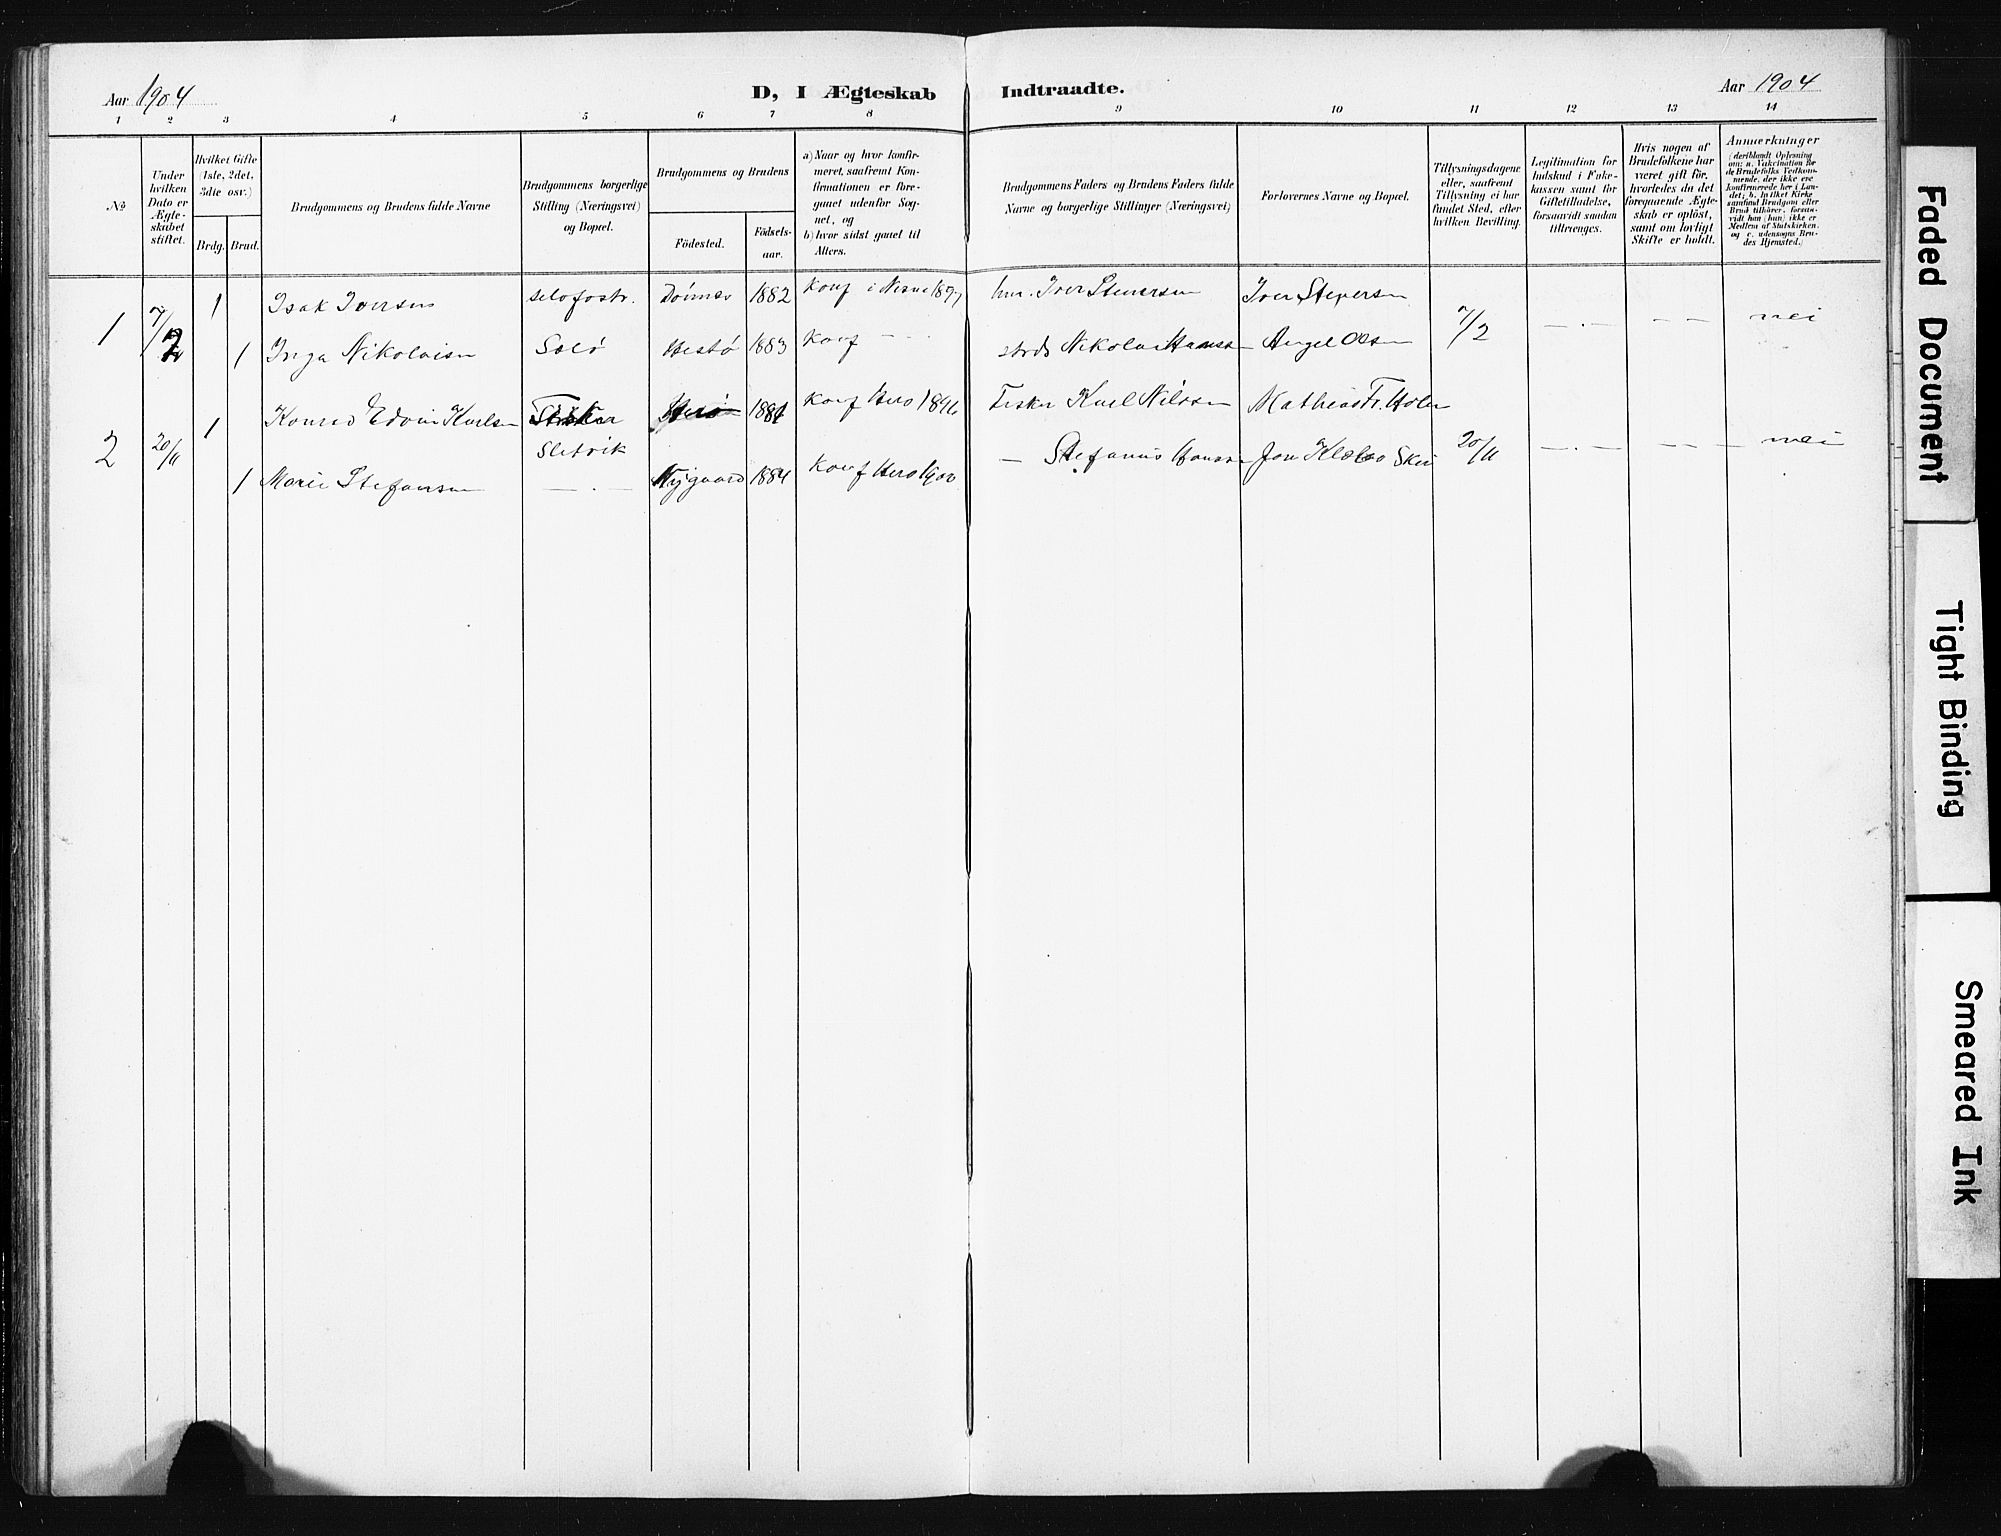 Aar 1904
D, I Ægteskab Indtraadte.
Aar 1904
1 2 3 4 5 6 7 8 9 10 11 12 13 14
№
Under hvilken Dato er Ægte-skabet stiftet.
Hvilket Gifte (1ste, 2det, 3die osv.)
Brdg. Brud.
Brudgommens og Brudens fulde Navne
Brudgommens borgerlige Stilling (Næringsvei) og Bopæl.
Brudgommens og Brudens
Födested.
Födsels-aar.
a) Naar og hvor konfir-meret, saafremt Kon-firmationen er fore-gaaet udenfor Sog-net, og
b) hvor sidst gaaet til Alters.
Brudgommens Faders og Brudens Faders fulde Navne og borgerlige Stillinger (Næringsvei)
Forlovernes Navne og Bopæl.
Tillysningsdagene eller, saafremt Tillysning ei har fundet Sted, efter hvilken Bevilling.
Legitimation for Indskud i Fake-kassen samt for Giftetilladelse, forsaavidt saadan tiltrænges.
Hvis nogen af Brudefolkene har været gift för, hvorledes da det foregaaende Ægte-skab er oplöst, samt om lovligt Skifte er holdt.
Anmerkninger
(deriblandt Oplysning om: a. Vakcination for de Brudefolks Vedkom-mende, der ikke ere konfirmerede her i Lan-det; b. hvilket Kirke-samfund Brudgom eller Brud tilhörer, forsaa-vidt han (hun) ikke er Medlem af Statskirken, og c. udensogns Bru-des Hjemsted.)
1 7/2 1 Isak Iversen Dönnes 1882 Konf i Nesne 1897 Iver Steversen Iver Steversen 7/2 — . — — — nei
1 Inga Nikolaisen Solö Hestö 1883 Konf — Nikolai Hansen Angel Olsen
2 20/11 1 Konrad Edvin Karlsen Fisker Herö 1881 Konf Herö 1896 Fisker Karl Nilssen Mathias Fr. Holm 20/11 — . — — — nei
Sletvik
1 Marie Stefansen — . — Nygaard 1884 Konf Herö 1900 — Stefanus Hansen Jon
Faded Document
Tight Binding
Smeared Ink